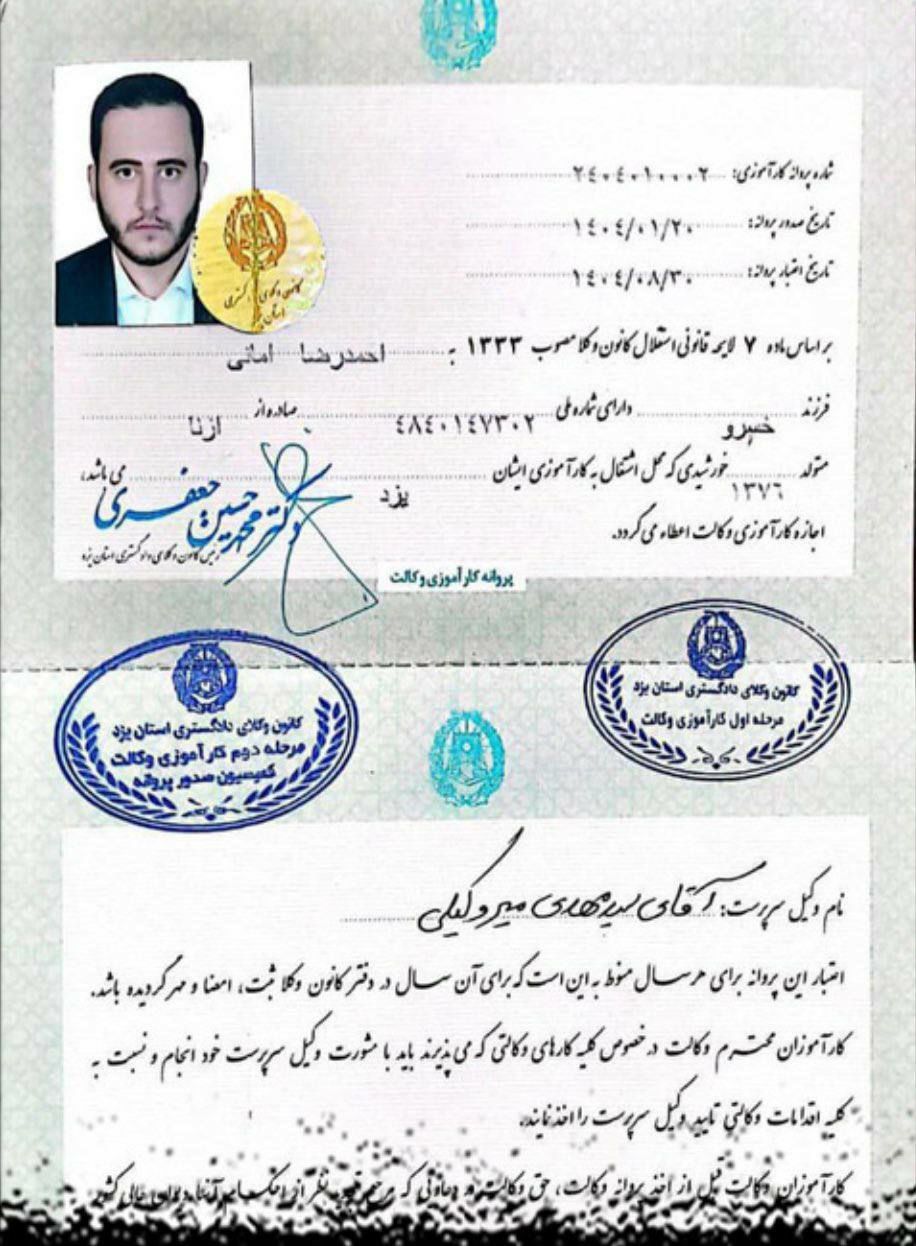 شماره پروانه کارآموزی: ۲۴۰۴۰۱۰۰۰۲
تاریخ صدور پروانه: ۱۴۰۴/۰۱/۲۰
تاریخ اعتبار پروانه: ۱۴۰۴/۰۸/۳۰
کانون وکلای دادگستری
استان یزد
بر اساس ماده ۷ لایحه قانونی استقلال کانون وکلا مصوب ۱۳۳۳ به احمدرضا امانی
فرزند خسرو دارای شماره ملی ۴۸۴۰۱۴۷۳۰۲ صادره از ازنا
متولد ۱۳۷۶ خورشیدی که محل اشتغال به کارآموزی ایشان یزد می باشد،
اجازه کارآموزی وکالت اعطاء می گردد.
دکتر محمدحسین جعفری
رئیس کانون وکلای دادگستری استان یزد
پروانه کارآموزی وکالت
کانون وکلای دادگستری استان یزد
مرحله اول کارآموزی وکالت
کانون وکلای دادگستری استان یزد
مرحله دوم کارآموزی وکالت
کمیسیون صدور پروانه
نام وکیل سرپرست: آقای سیدمهدی میروکیلی
اعتبار این پروانه برای هر سال منوط به این است که برای آن سال در دفتر کانون وکلا ثبت، امضا و مهر گردیده باشد.
کارآموزان محترم وکالت در خصوص کلیه کارهای وکالتی که می پذیرند باید با مشورت وکیل سرپرست خود انجام و نسبت به
کلیه اقدامات وکالتی تایید وکیل سرپرست را اخذ نمایند.
کارآموزان وکالت قبل از اخذ پروانه وکالت، حق وکالت در دعاوی که مرجع تجدید نظر از احکام آنها دیوان عالی کشور